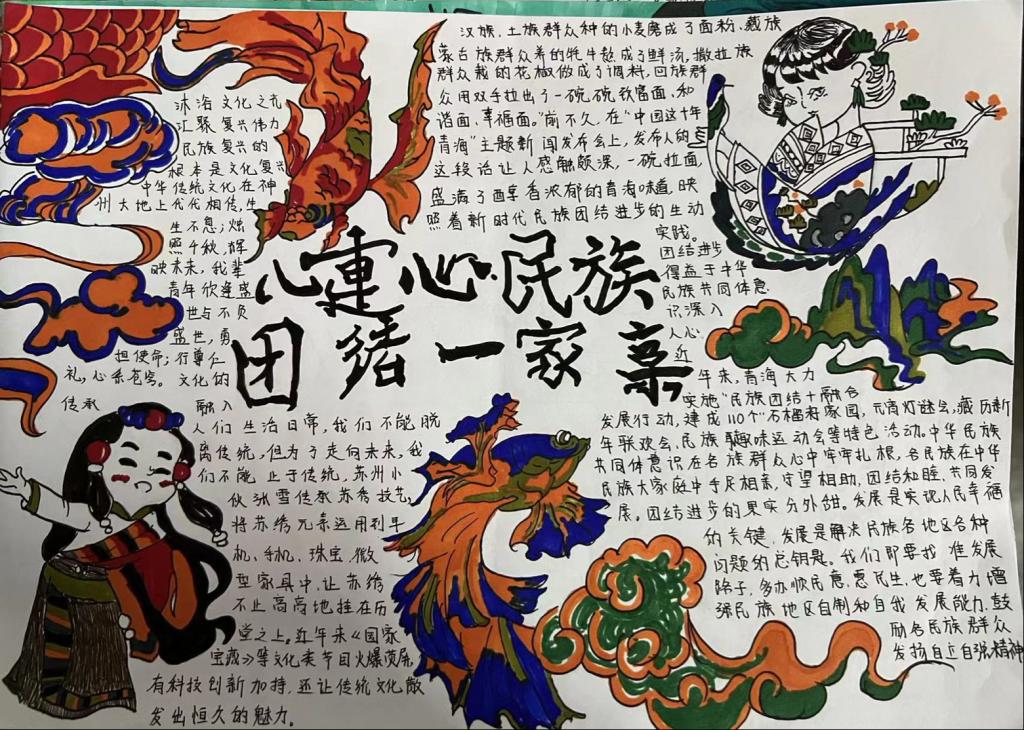 心連心·民族
团结一家亲
沐浴文化之光
汇聚复兴伟力
民族复兴的
根本是文化复兴
中华传统文化在神
州大地上代代相传,生
生不息;烛
照千秋,辉
映未来,我辈
青年欣逢盛
世与不负
盛世,勇
担使命;行尊仁
礼,心系苍穹。文化的
传承
融入
人们生活日常,我们不能脱
离传统,但为了走向未来,我
们不能止于传统,苏州小
伙张雪传承苏秀技艺,
将苏绣元素运用到耳
机、手机、珠宝、微
型家具中,让苏绣
不止高高地挂在历
堂之上。近年来《国家
宝藏》等文化类节目火爆荧屏,
有科技创新加持,还让传统文化散
发出恒久的魅力。
汉族、土族群众种的小麦磨成了面粉、藏族
蒙古族群众养的牦牛熬成了鲜汤,撒拉族
群众栽的花椒做成了调料,回族群
众用双手拉出了一碗碗致富面、和
谐面、幸福面。"前不久,在"中国这十年
青海"主题新闻发布会上,发布人的
这段话让人感触颇深,一碗拉面,
盛满了醇享香浓郁的青海味道,映
照着新时代民族团结进步的生动
实践。
团结进步
得益于中华
民族共同体意
识深入
人心
近
年来,青海大力
实施"民族团结十融合
发展行动,建成110个"石榴籽家园,元宵灯谜会,藏历新
年联欢会、民族趣味运动会等特色活动。中华民族
共同体意识在各族群众心中牢牢扎根,各民族在中华
民族大家庭中手足相亲,守望相助,团结和睦,共同发
展。团结进步的果实分外甜。发展是实现人民幸福
的关键,发展是解决民族各地区各种
问题的总钥匙。我们即要找准发展
路子,多办顺民意,惠民生,也要着力增
强民族地区自制和自我发展能力,鼓
励各民族群众
发扬自立自强精神